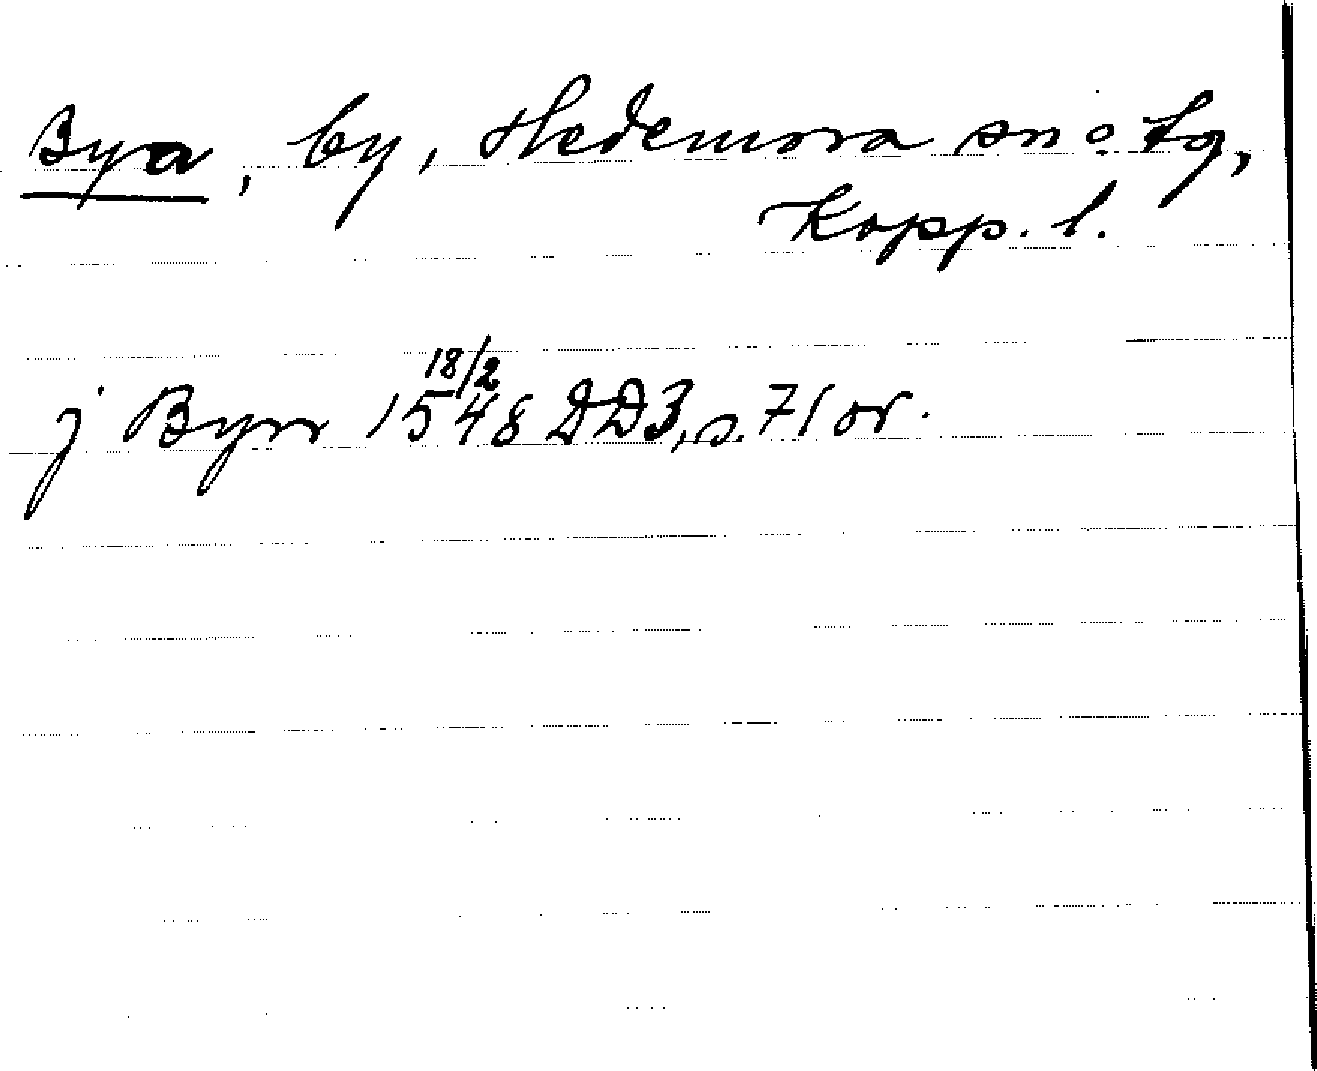 Bya, by, Hedemora sn o. tg,
Kopp. l.
j Byn 18/2 1548 DD3, s. 71 or.